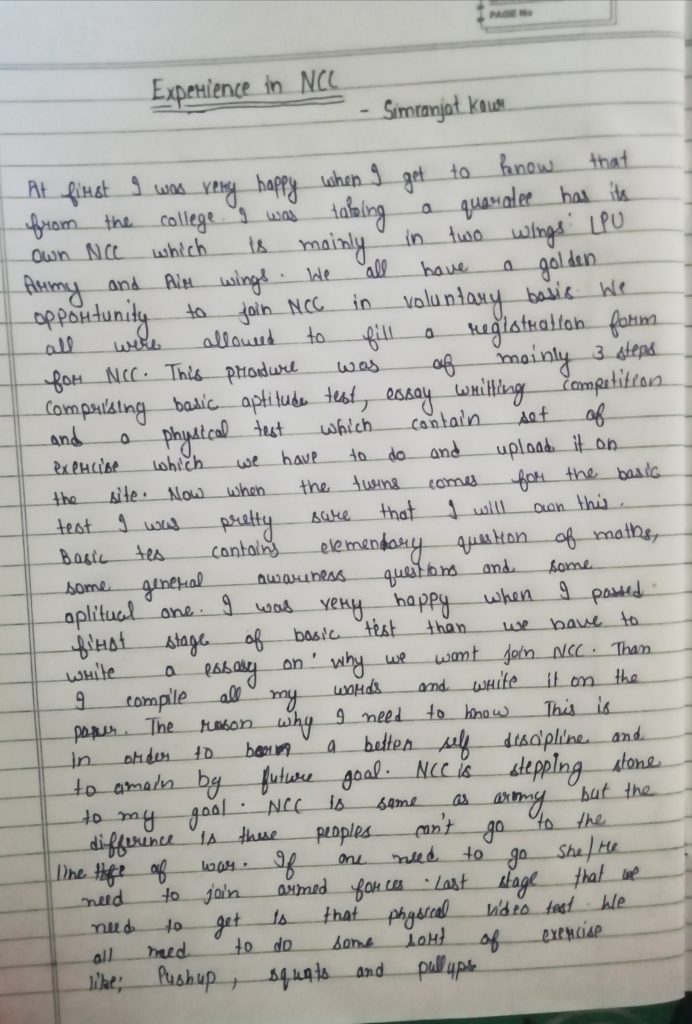 PAGE No
Experience in NCC
- Simranjat Kaur
At first I was very happy when I get to know that
from the college. I was taking a has its
own NCC which is mainly in two wings: LPU
Army and Air wings. We all have a golden
opportunity to join NCC in voluntary basis. We
all were allowed to fill a registration form
for NCC. This was of mainly 3 steps
comprising basic aptitude test, essay writting competition
and a physical test which contain set of
exercise which we have to do and upload it on
the site. Now when the turns comes for the basic
test I was pretty sure that I will own this.
Basic tes contains elemendary question of maths,
some general awarness questions and some
aplitual one. I was very happy when I passed
first stage of basic test than we have to
write a essay on 'why we want join NCC. Than
I compile all my words and write it on the
paper. The reason why I need to know This is
in order to a better self discipline and
to by future goal. NCC is stepping stone
to my goal. NCC is same as army but the
difference is these peoples can't go to the
line of war. If one need to go She/He
need to join armed forces. last stage that we
need to get is that physical video test. We
all need to do some sort of exercise
like; Pushup, squats and pullups